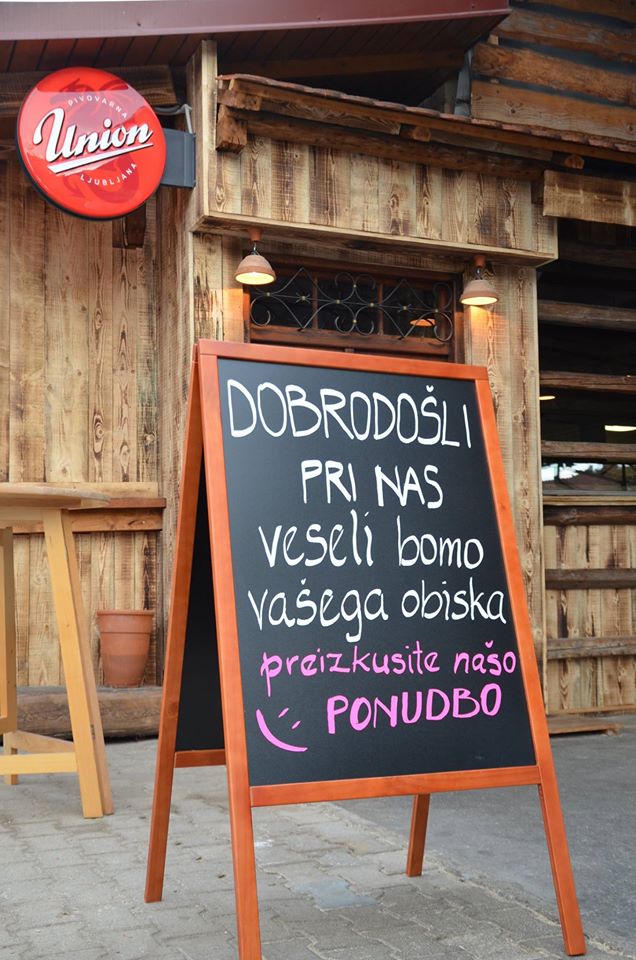 PIVOVARNA
Union
LJUBLJANA
DOBRODOŠLI
PRI NAS
veseli bomo
vašega obiska
preizkusite našo
PONUDBO